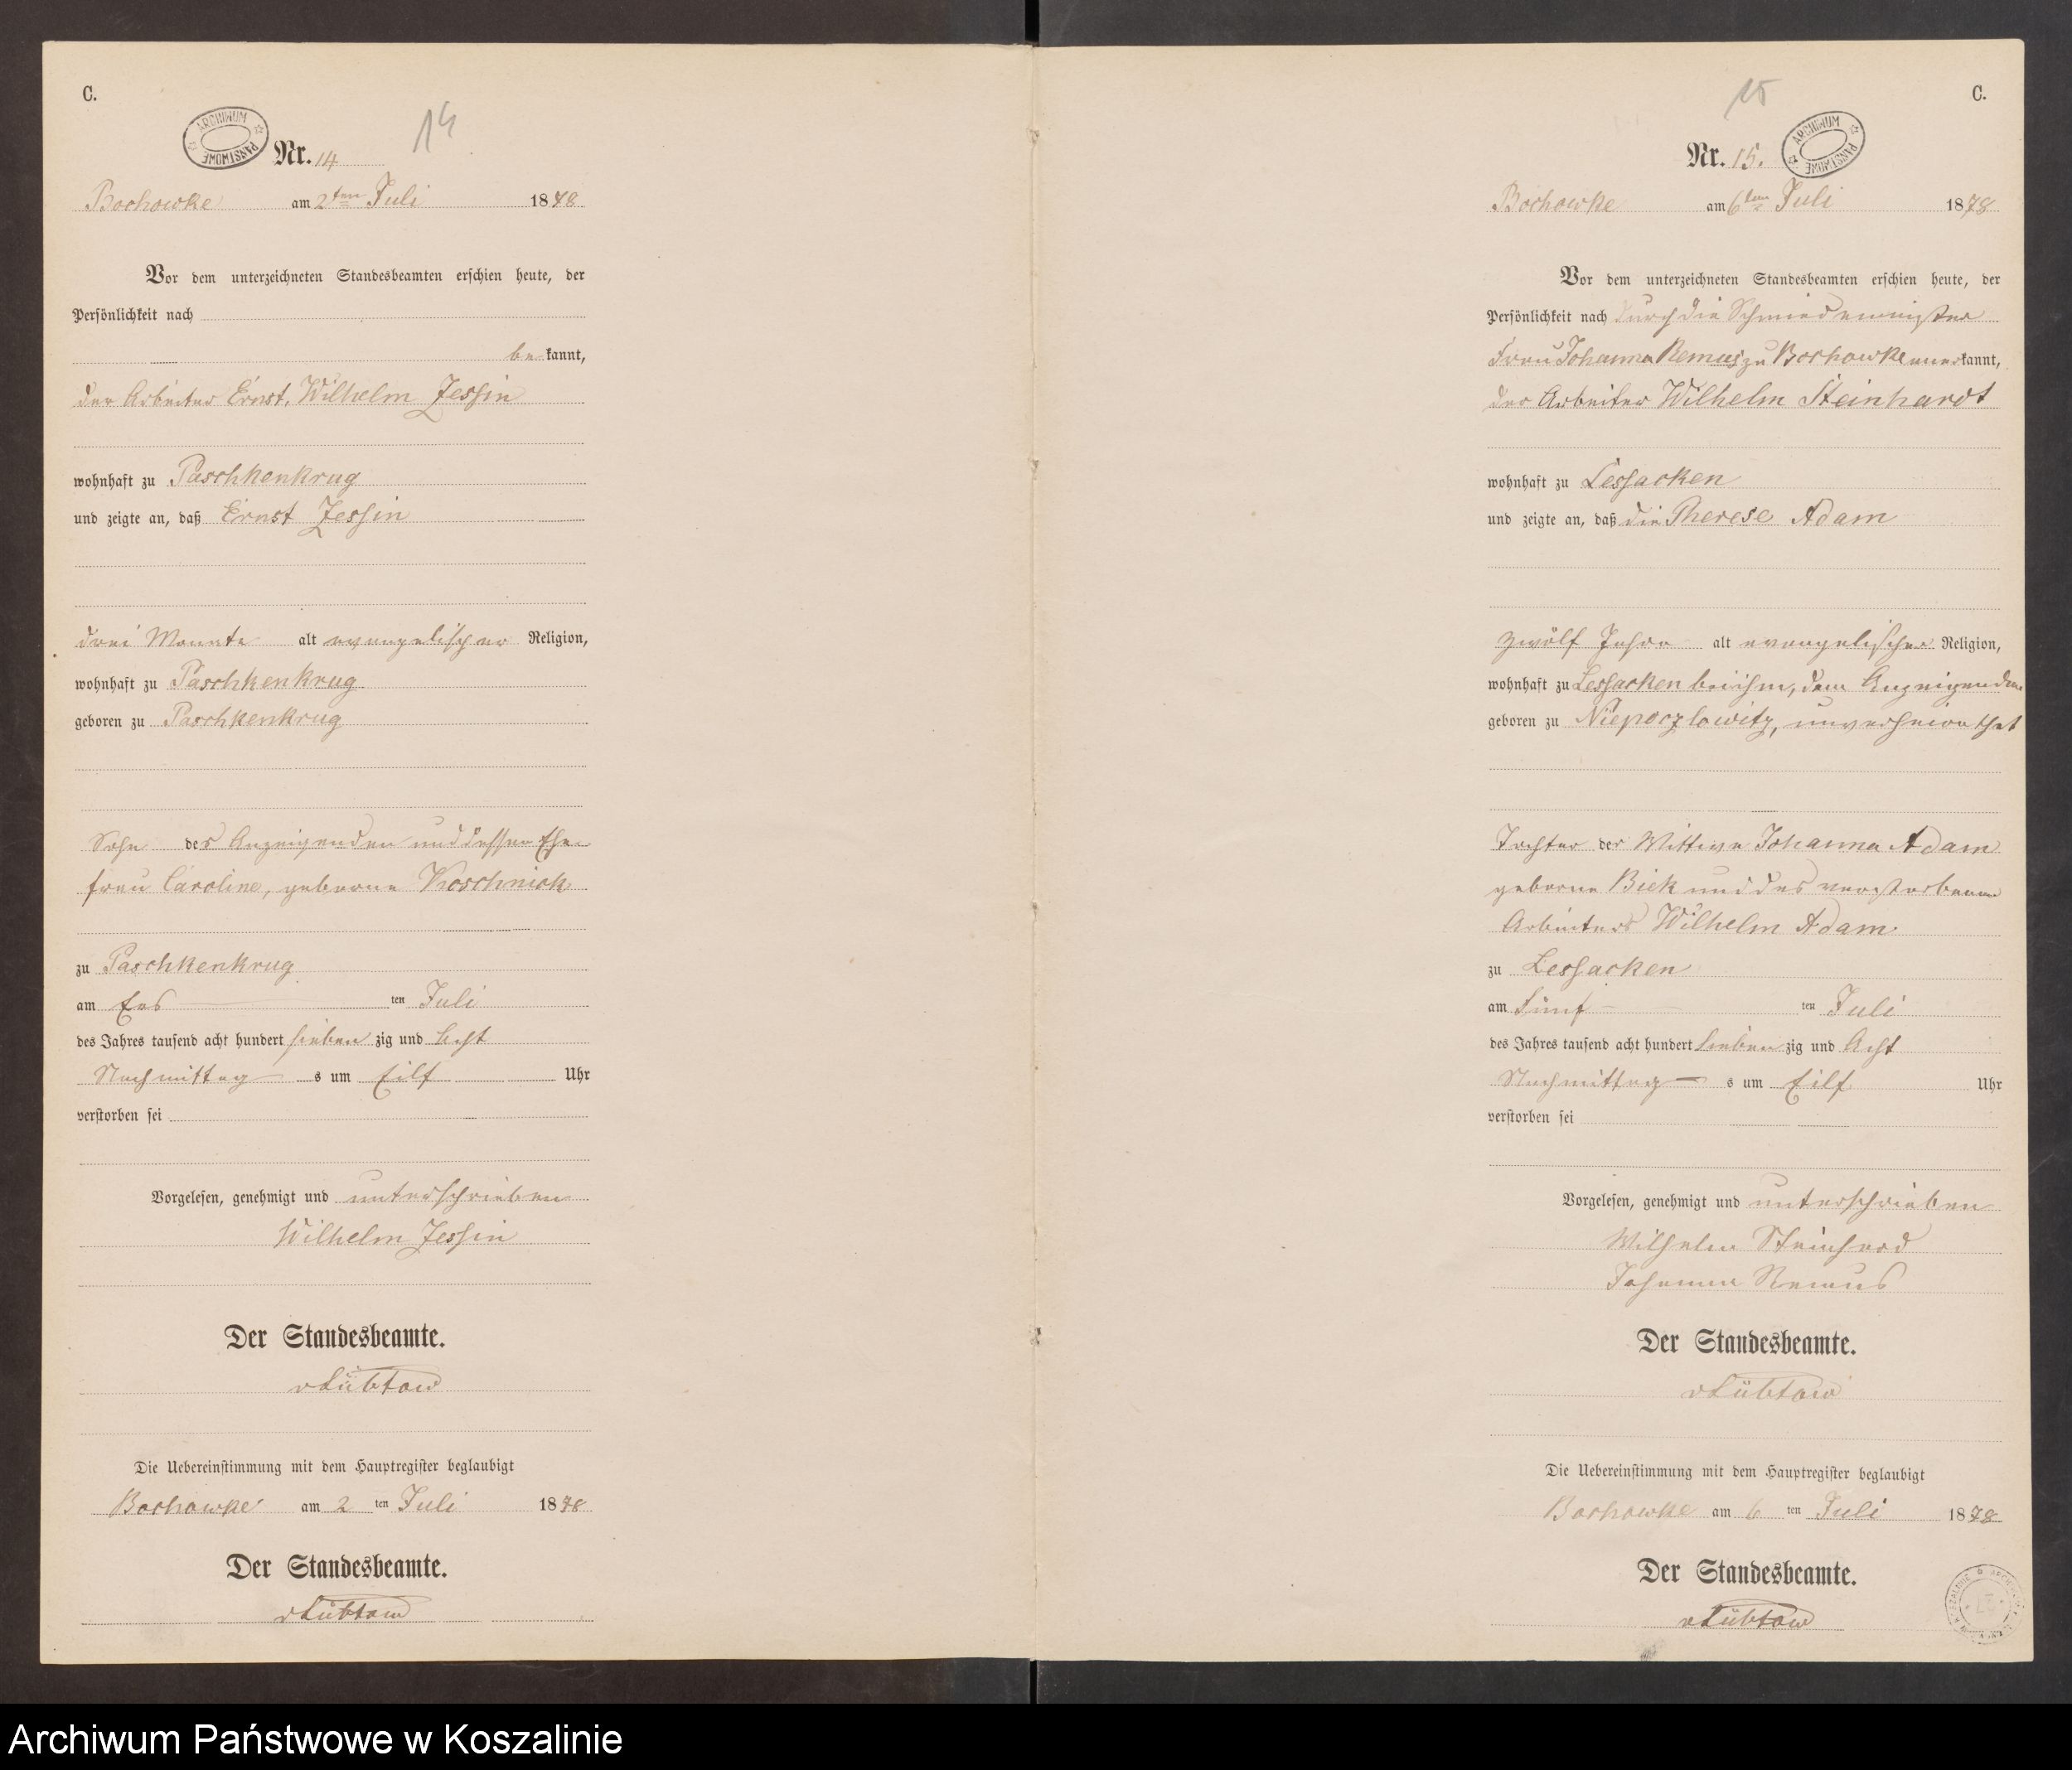 C.
14
ARCHIWUM PAŃSTWOWE
Nr. 14
Borhowke am 2ten Juli 1878
Vor dem unterzeichneten Standesbeamten erschien heute, der
Persönlichkeit nach
be kannt,
der Arbeiter Ernst, Wilhelm Jessin
wohnhaft zu Paschkenkrug
und zeigte an, daß Ernst Jessin
drei Monate alt evangelischer Religion,
wohnhaft zu Paschkenkrug
geboren zu Paschkenkrug
Sohn des Anzeigenden und dessen Ehe-
frau Caroline, geborne Koschnick
zu Paschkenkrug
am Ers ten Juli
des Jahres tausend acht hundert sieben zig und Acht
Nachmittag s um Eilf Uhr
verstorben sei
Vorgelesen, genehmigt und unterschrieben
Wilhelm Jessin
Der Standesbeamte.
vLübtow
Die Uebereinstimmung mit dem Hauptregister beglaubigt
Borhowke am 2 ten Juli 1878
Der Standesbeamte.
vLübtow
15
C.
Nr. 15.
ARCHIWUM PAŃSTWOWE
Borhowke am 6ten Juli 1878
Vor dem unterzeichneten Standesbeamten erschien heute, der
Persönlichkeit nach durch die Schmiedemeister
Frau Johanna Remus zu Borhowke anerkannt,
der Arbeiter Wilhelm Steinhardt
wohnhaft zu Lessacken
und zeigte an, daß die Therese Adam
zwölf Jahre alt evangelischer Religion,
wohnhaft zu Lessacken bei ihm, dem Anzeigenden
geboren zu Niepoczlowitz, unverheirathet
Tochter der Wittwe Johanna Adam
geborne Biek und des verstorbenen
Arbeiters Wilhelm Adam
zu Lessacken
am Fünf ten Juli
des Jahres tausend acht hundert sieben zig und Acht
Nachmittag s um Eilf Uhr
verstorben sei
Vorgelesen, genehmigt und unterschrieben
Wilhelm Steinhard
Johanna Remus
Der Standesbeamte.
vLübtow
Die Uebereinstimmung mit dem Hauptregister beglaubigt
Borhowke am 6 ten Juli 1878
Der Standesbeamte.
vLübtow
Archiwum Państwowe w Koszalinie